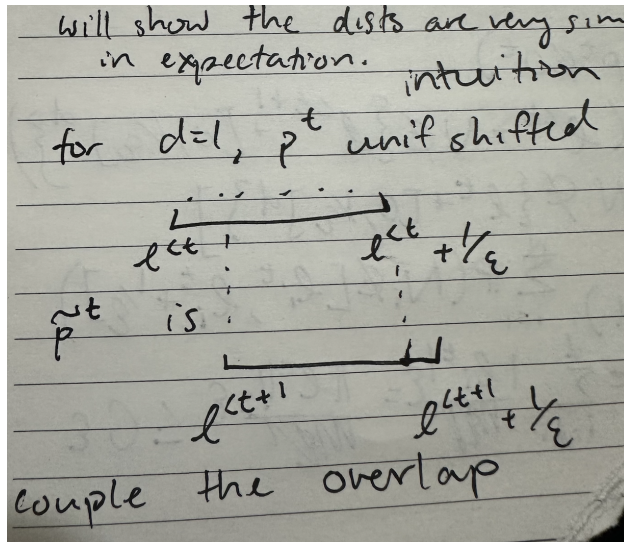 will show the dists are very sim
in expectation.
intuition
for d=1, p^t unif shifted
l^{<t} l^{<t} + 1/ε
p̃^t is
l^{<t+1} l^{<t+1} + 1/ε
couple the overlap